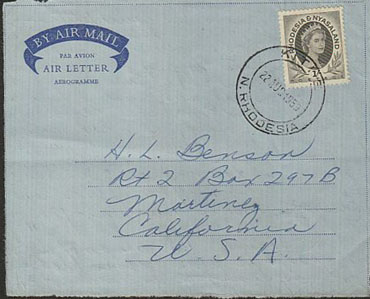 BY AIR MAIL
PAR AVION
AIR LETTER
AEROGRAMME
RHODESIA & NYASALAND
N. RHODESIA
H. L. Benson
Rt 2 Box 297B
Martinez
California
U. S. A.